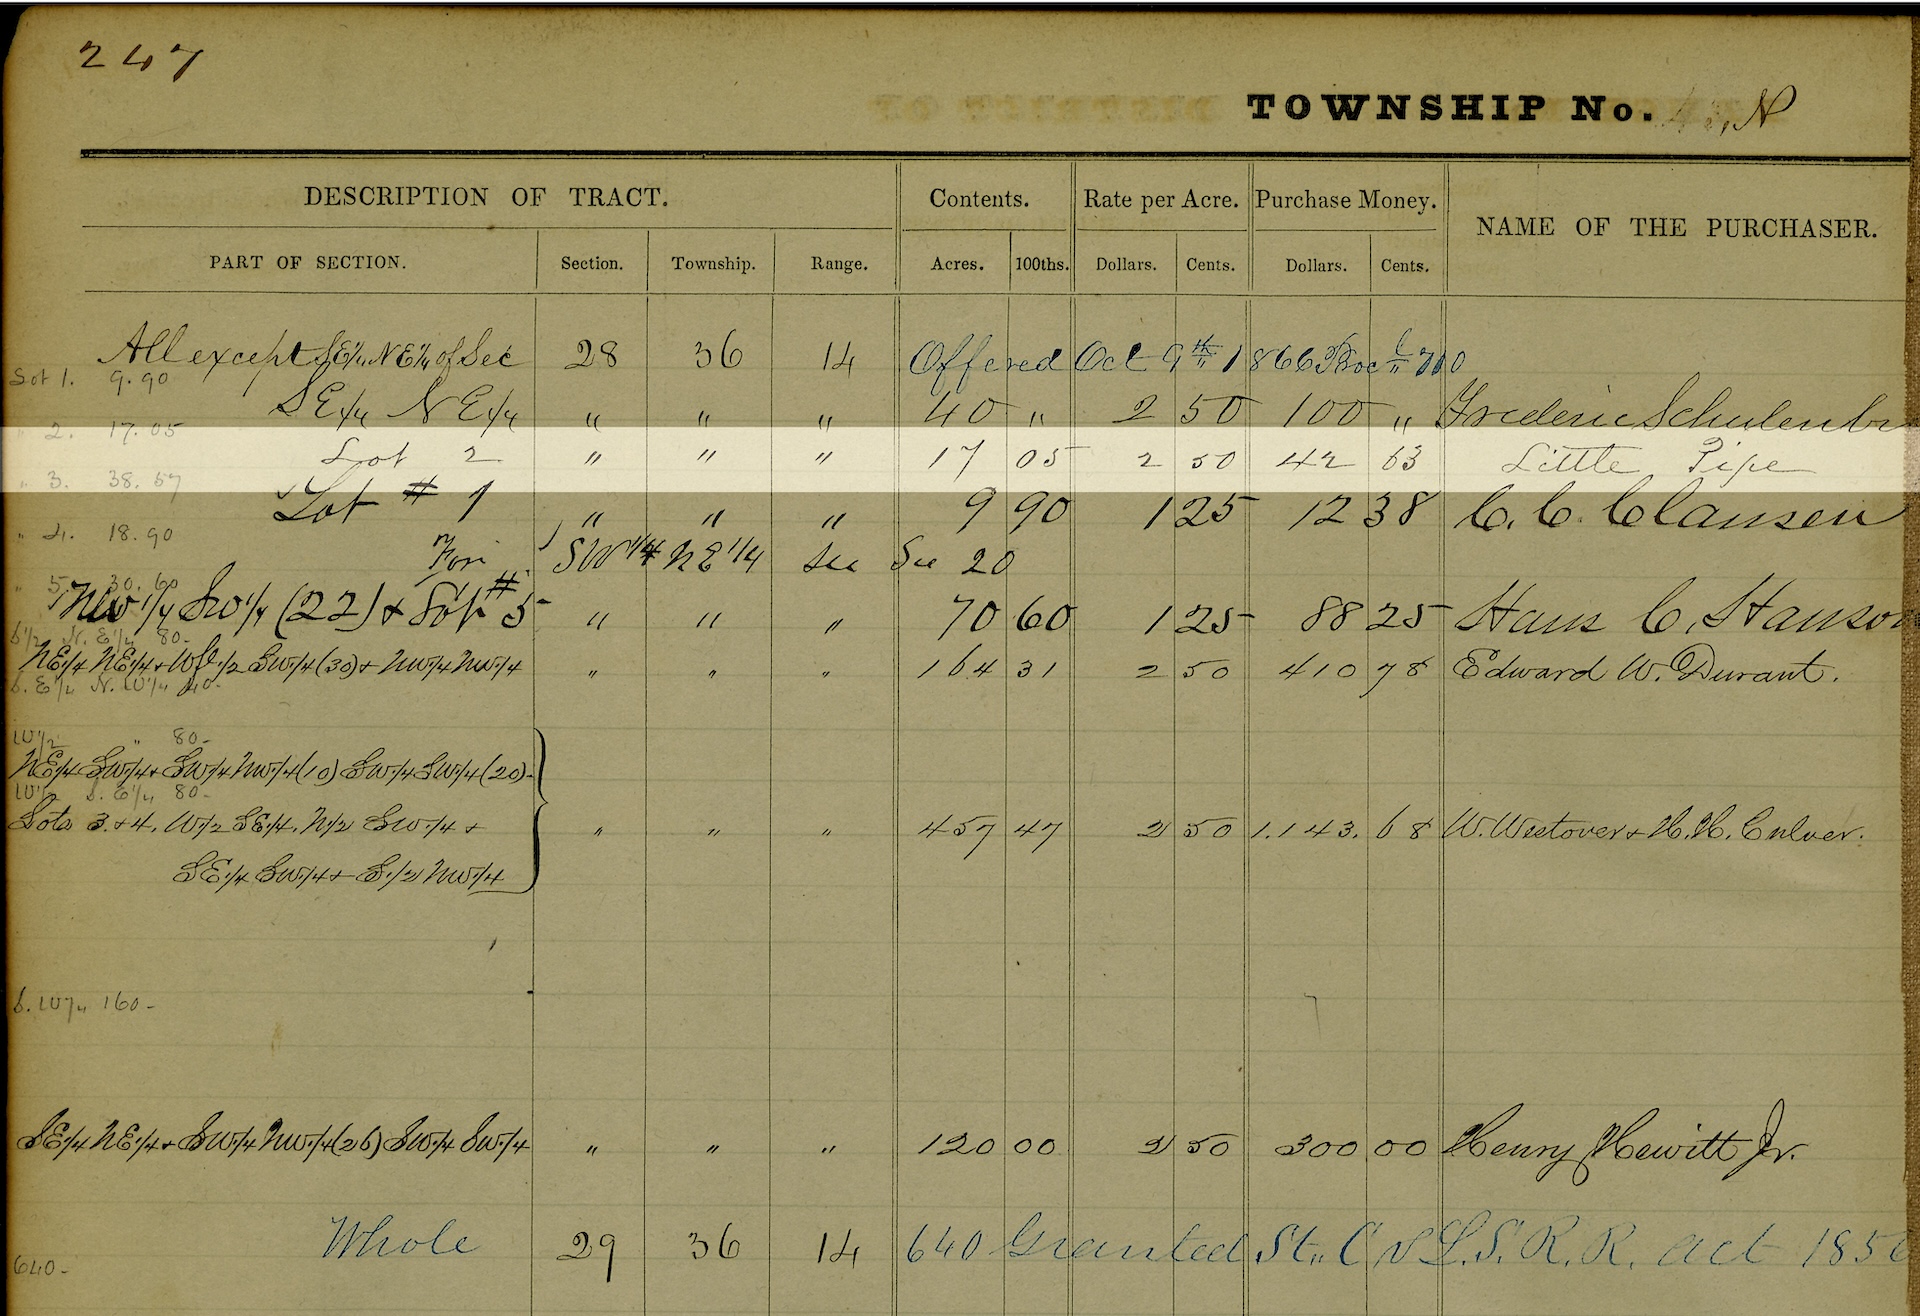 247
TOWNSHIP No. N
DESCRIPTION OF TRACT. Contents. Rate per Acre. Purchase Money. NAME OF THE PURCHASER.
PART OF SECTION. Section. Township. Range. Acres. 100ths. Dollars. Cents. Dollars. Cents.
All except SE1/4 NE1/4 of Sec 28 36 14 Offered Oct 9th 1866 Proc 710
Lot 1. 9.90
SE1/4 NE1/4 " " " 40 " 2 50 100 " Frederic Schulenbu
" 2. 17.05
Lot 2 " " " 17 05 2 50 42 63 Little Pipe
" 3. 38.57
Lot # 1 " " " 9 90 1 25 12 38 C. C. Clausen
" 4. 18.90
For SW 1/4 NE 1/4 see Sec 20
" 5 30.60
NW 1/4 SW 1/4 (22) & Lot # 5 " " " 70 60 1 25 88 25 Hans C. Hanson
S1/2 N. E1/4 80-
NE1/4 NE1/4 & W 1/2 SW1/4 (30) & NW1/4 NW1/4 " " " 164 31 2 50 410 78 Edward W. Durant.
S. E1/4 N. W1/4 40-
W1/2 " 80-
NE1/4 SW1/4 & SW1/4 NW1/4 (10) SW1/4 SW1/4 (20)-
W1/2 S. E1/4 80-
Lots 3 & 4, W/2 SE/4, N/2 SW1/4 & " " " 457 47 2 50 1.143. 68 W. Westover & H. H. Culver.
SE1/4 SW1/4 & S1/2 NW1/4
S. W1/4 160-
SE1/4 NE1/4 & SW1/4 NW1/4 (26) SW1/4 SW1/4 " " " 120 00 2 50 300 00 Henry Hewitt Jr.
Whole 29 36 14 640 Granted St. C & L. S. R. R. act 185
640-